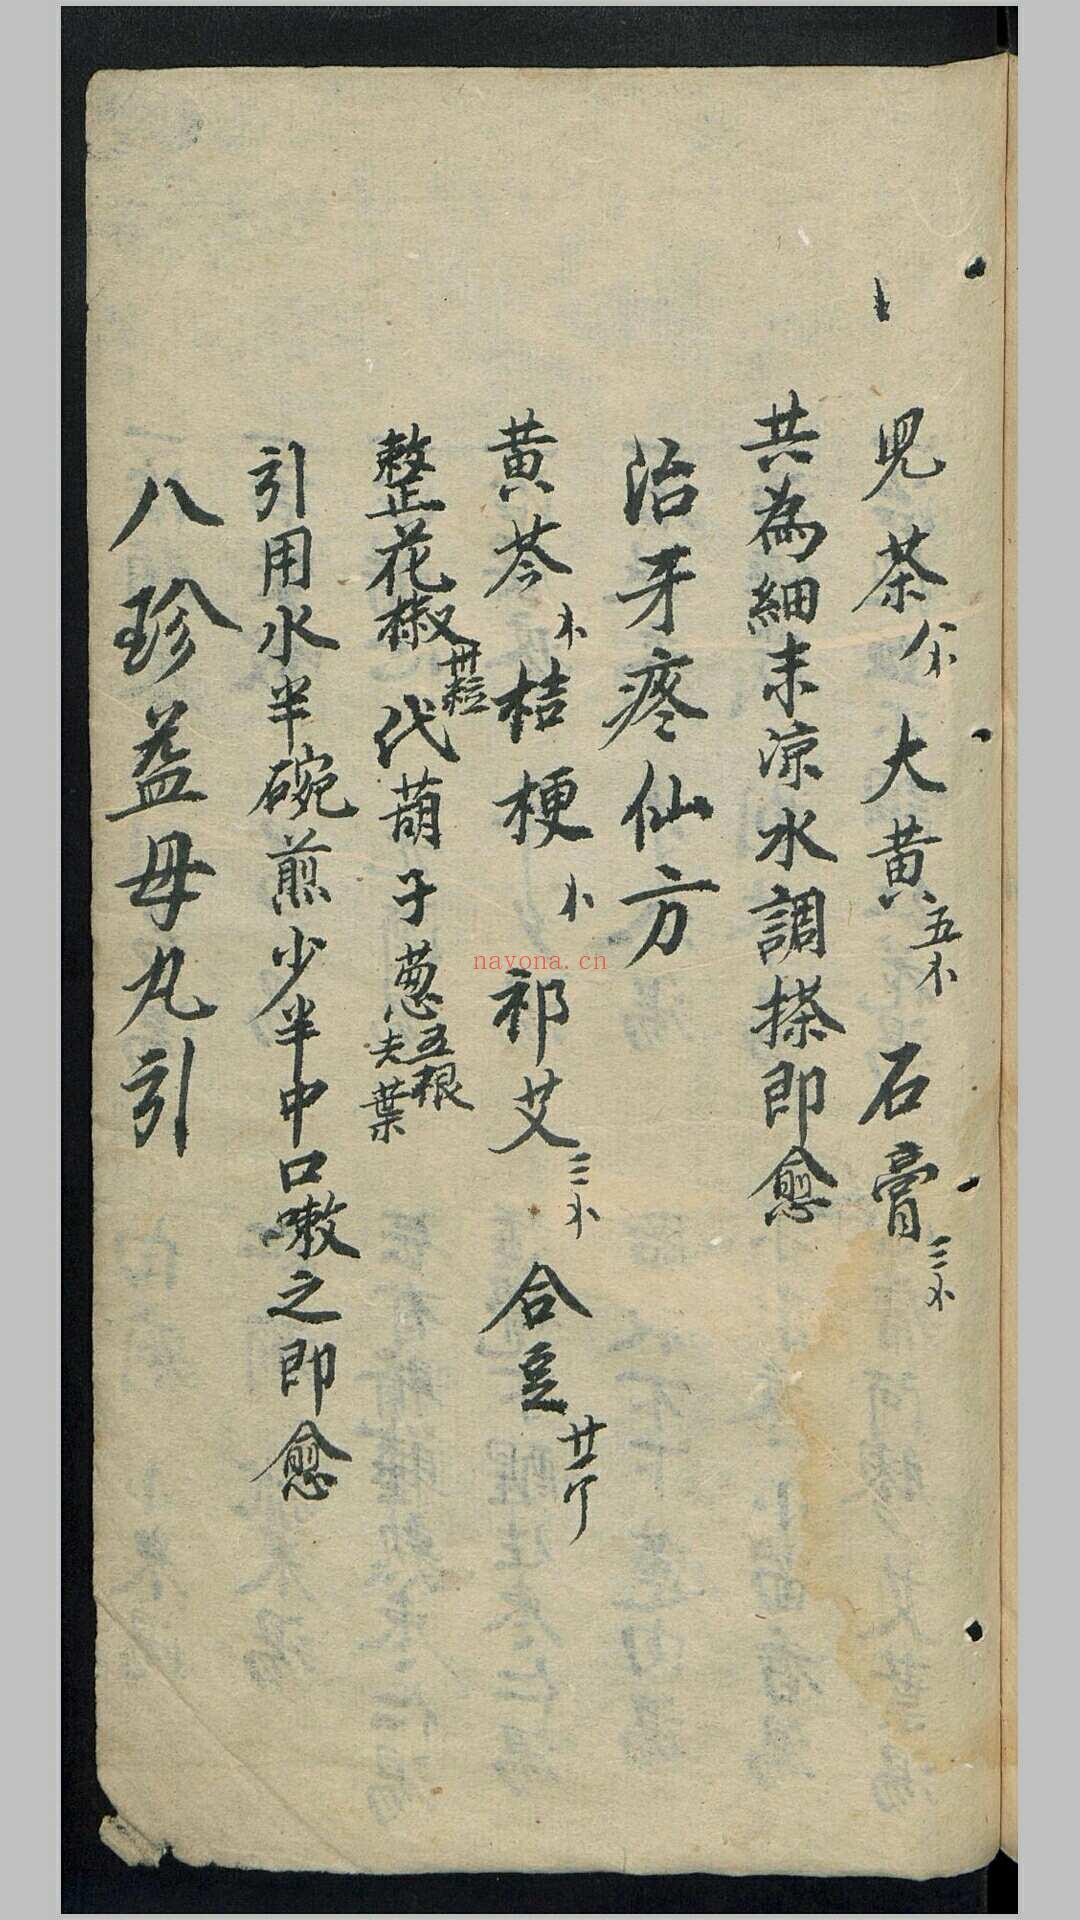 兒茶 大黄五 石膏三
共為細末涼水調搽即愈
治牙疼仙方
黄芩 桔梗 祁艾三 合豆廿
整花椒卅粒 代葫子葱五根去葉
引用水半碗煎少半中口嗽之即愈
八珍益母丸引
nayona.cn